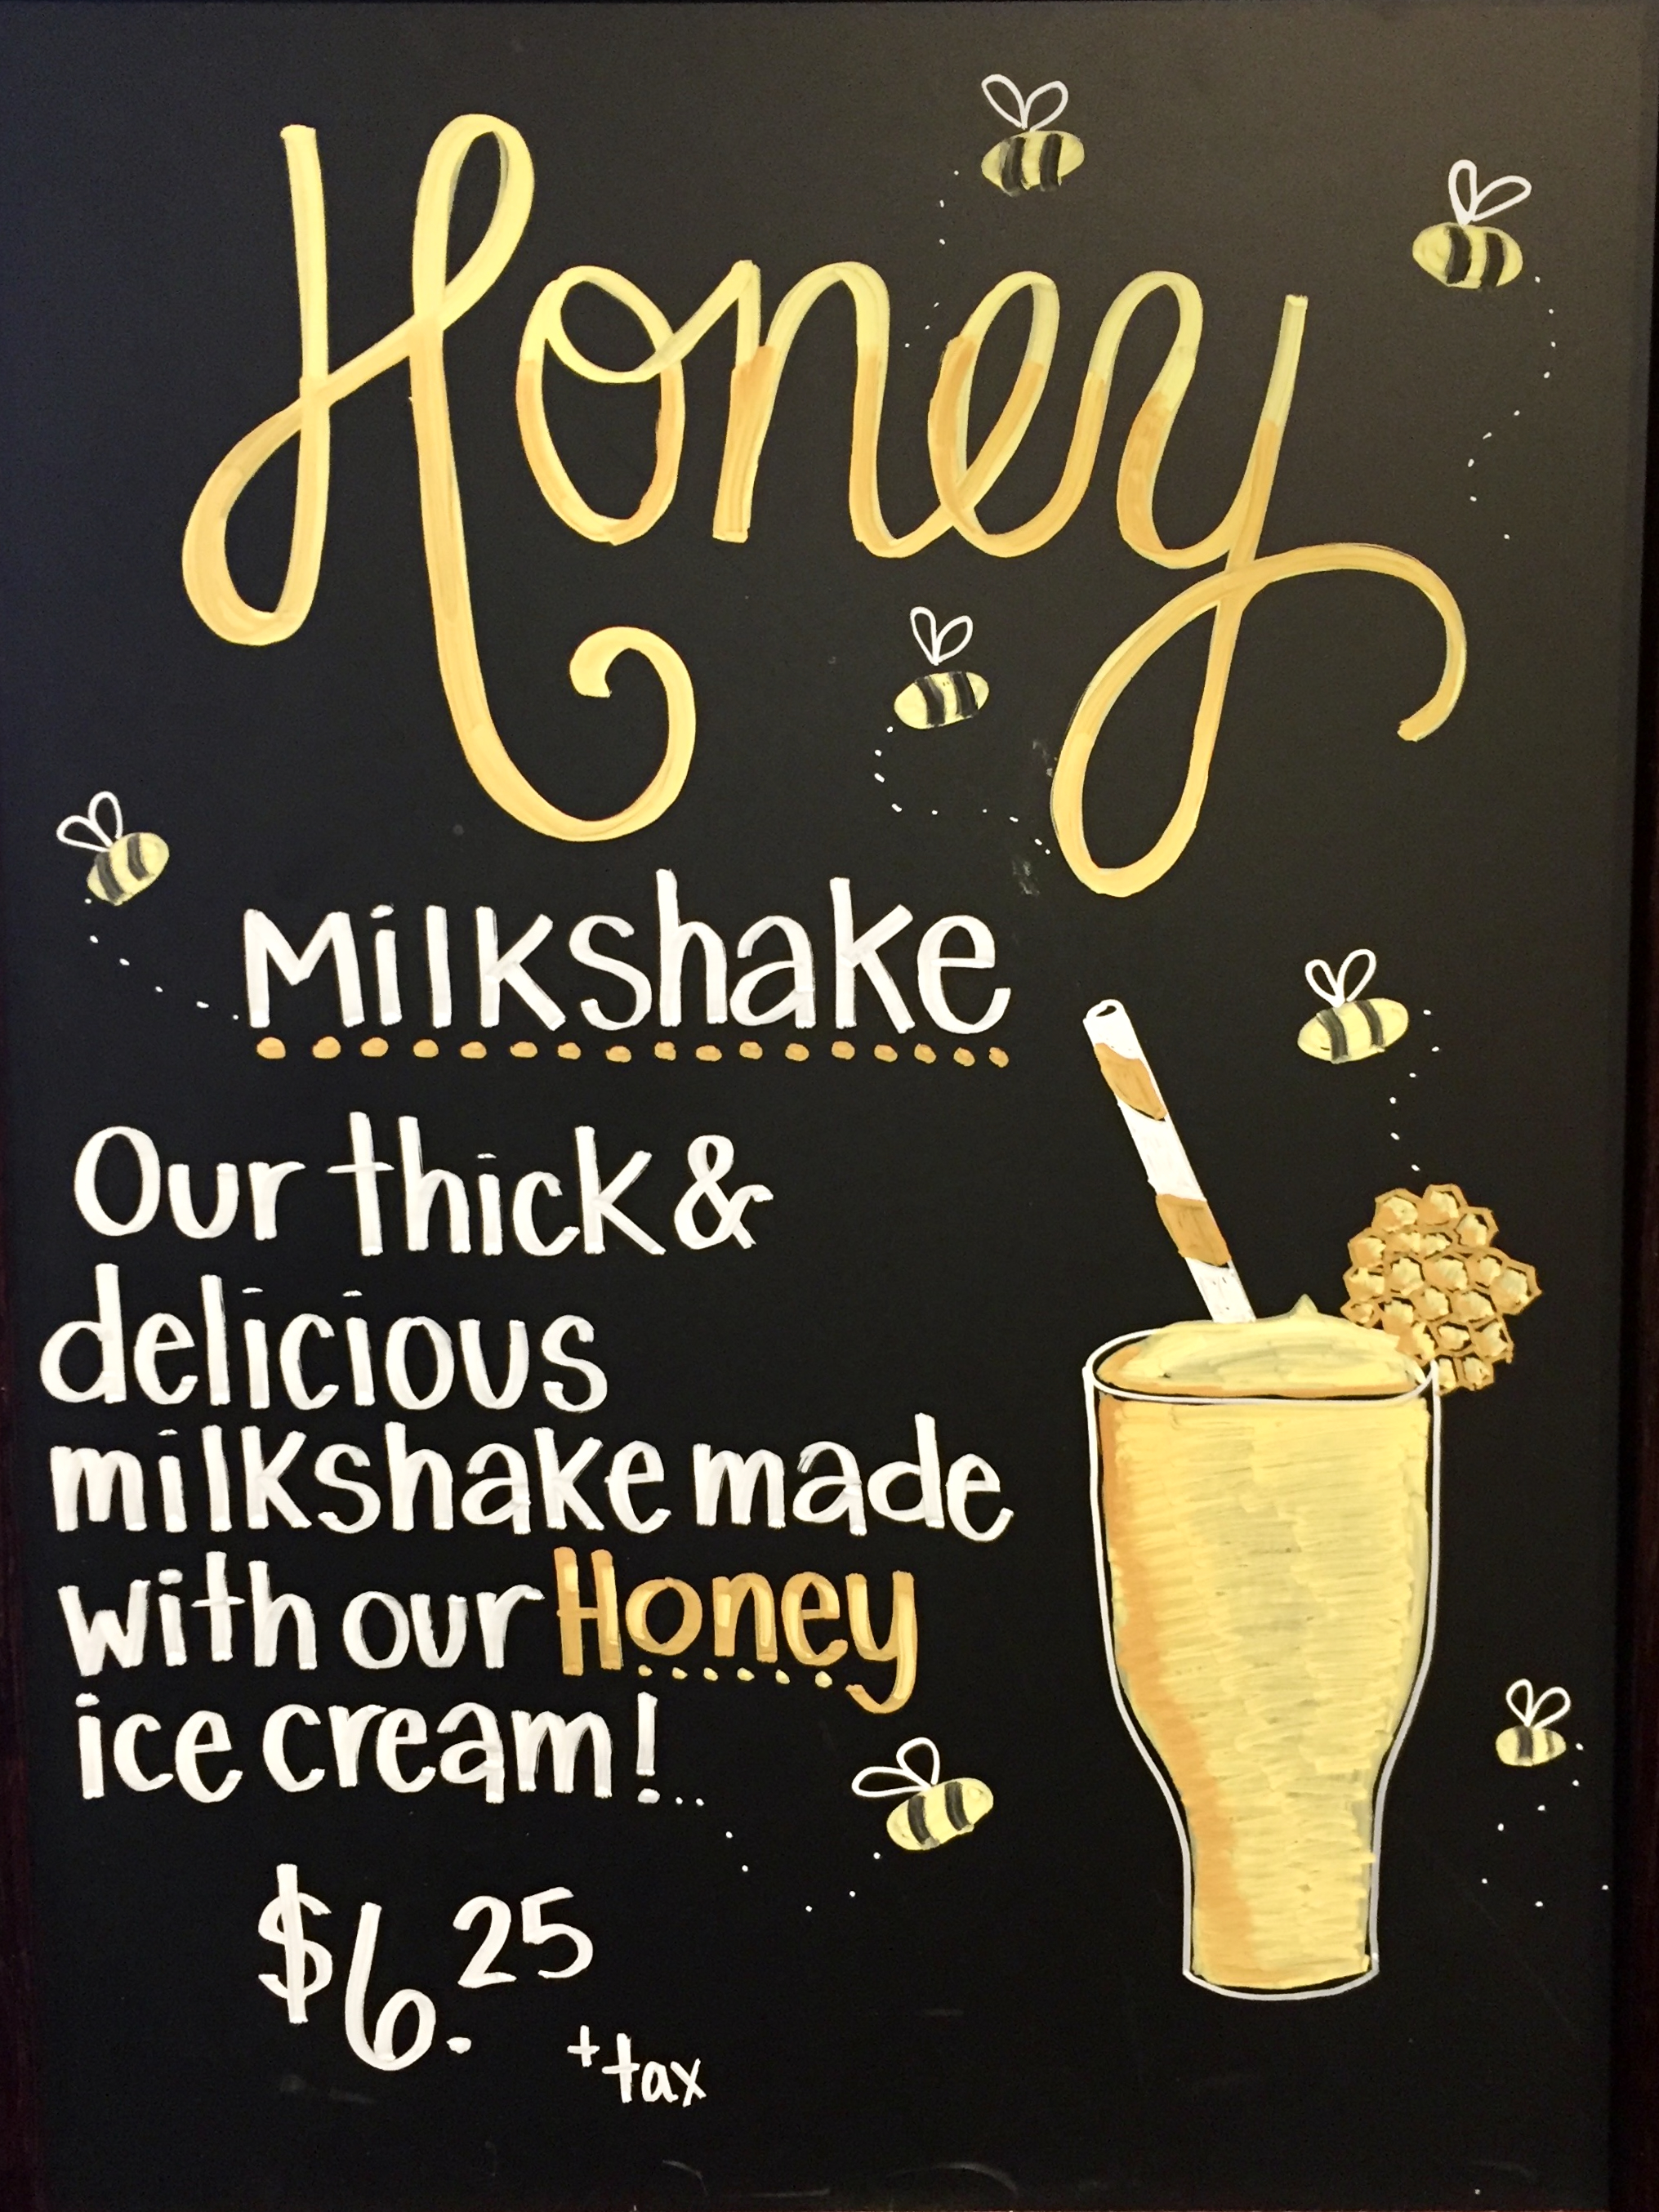 Honey
Milkshake
Our thick &
delicious
milkshake made
with our Honey
ice cream!
$6.25
+tax